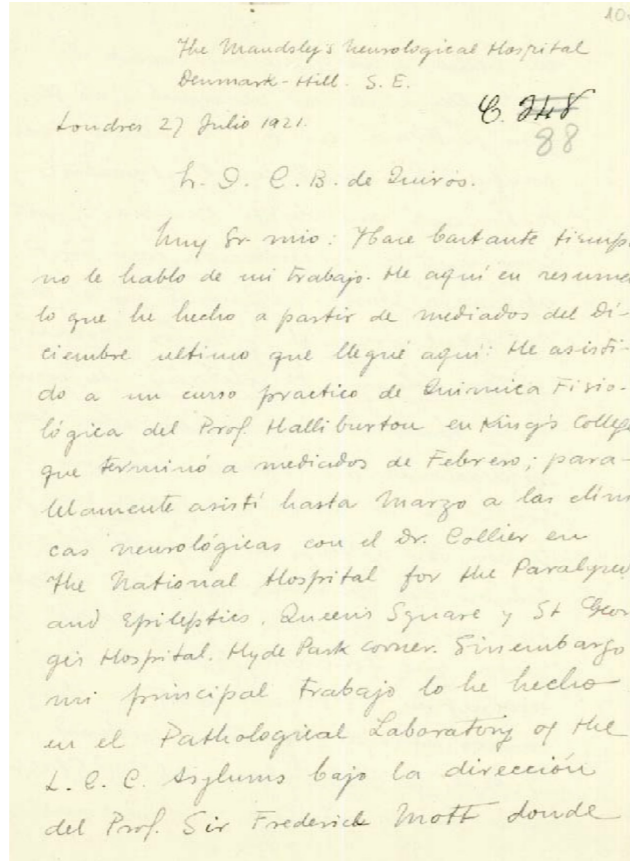 10
The Maudsly's Neurological Hospital
Denmark-Hill. S. E.
C. 248
88
Londres 27 Julio 1921.
Sr. D. C. B. de Quirós.
Muy Sr. mio: Hace bastante tiemp
no le hablo de mi trabajo. He aquí en resume
lo que he hecho a partir de mediados del Di-
ciembre ultimo que llegué aquí: He asisti-
do a un curso practico de Quimica Fisio-
lógica del Prof. Halliburton en King's Colleg
que terminó a mediados de Febrero; para-
lelamente asistí hasta Marzo a las clíni
cas neurológicas con el Dr. Collier en
The National Hospital for the Paralysed
and Epileptics. Queen's Square y St Geor
ge's Hospital. Hyde Park corner. Sin embargo
mi principal trabajo lo he hecho
en el Pathological Laboratory of the
L. C. C. Asylums bajo la dirección
del Prof. Sir Frederick Mott donde